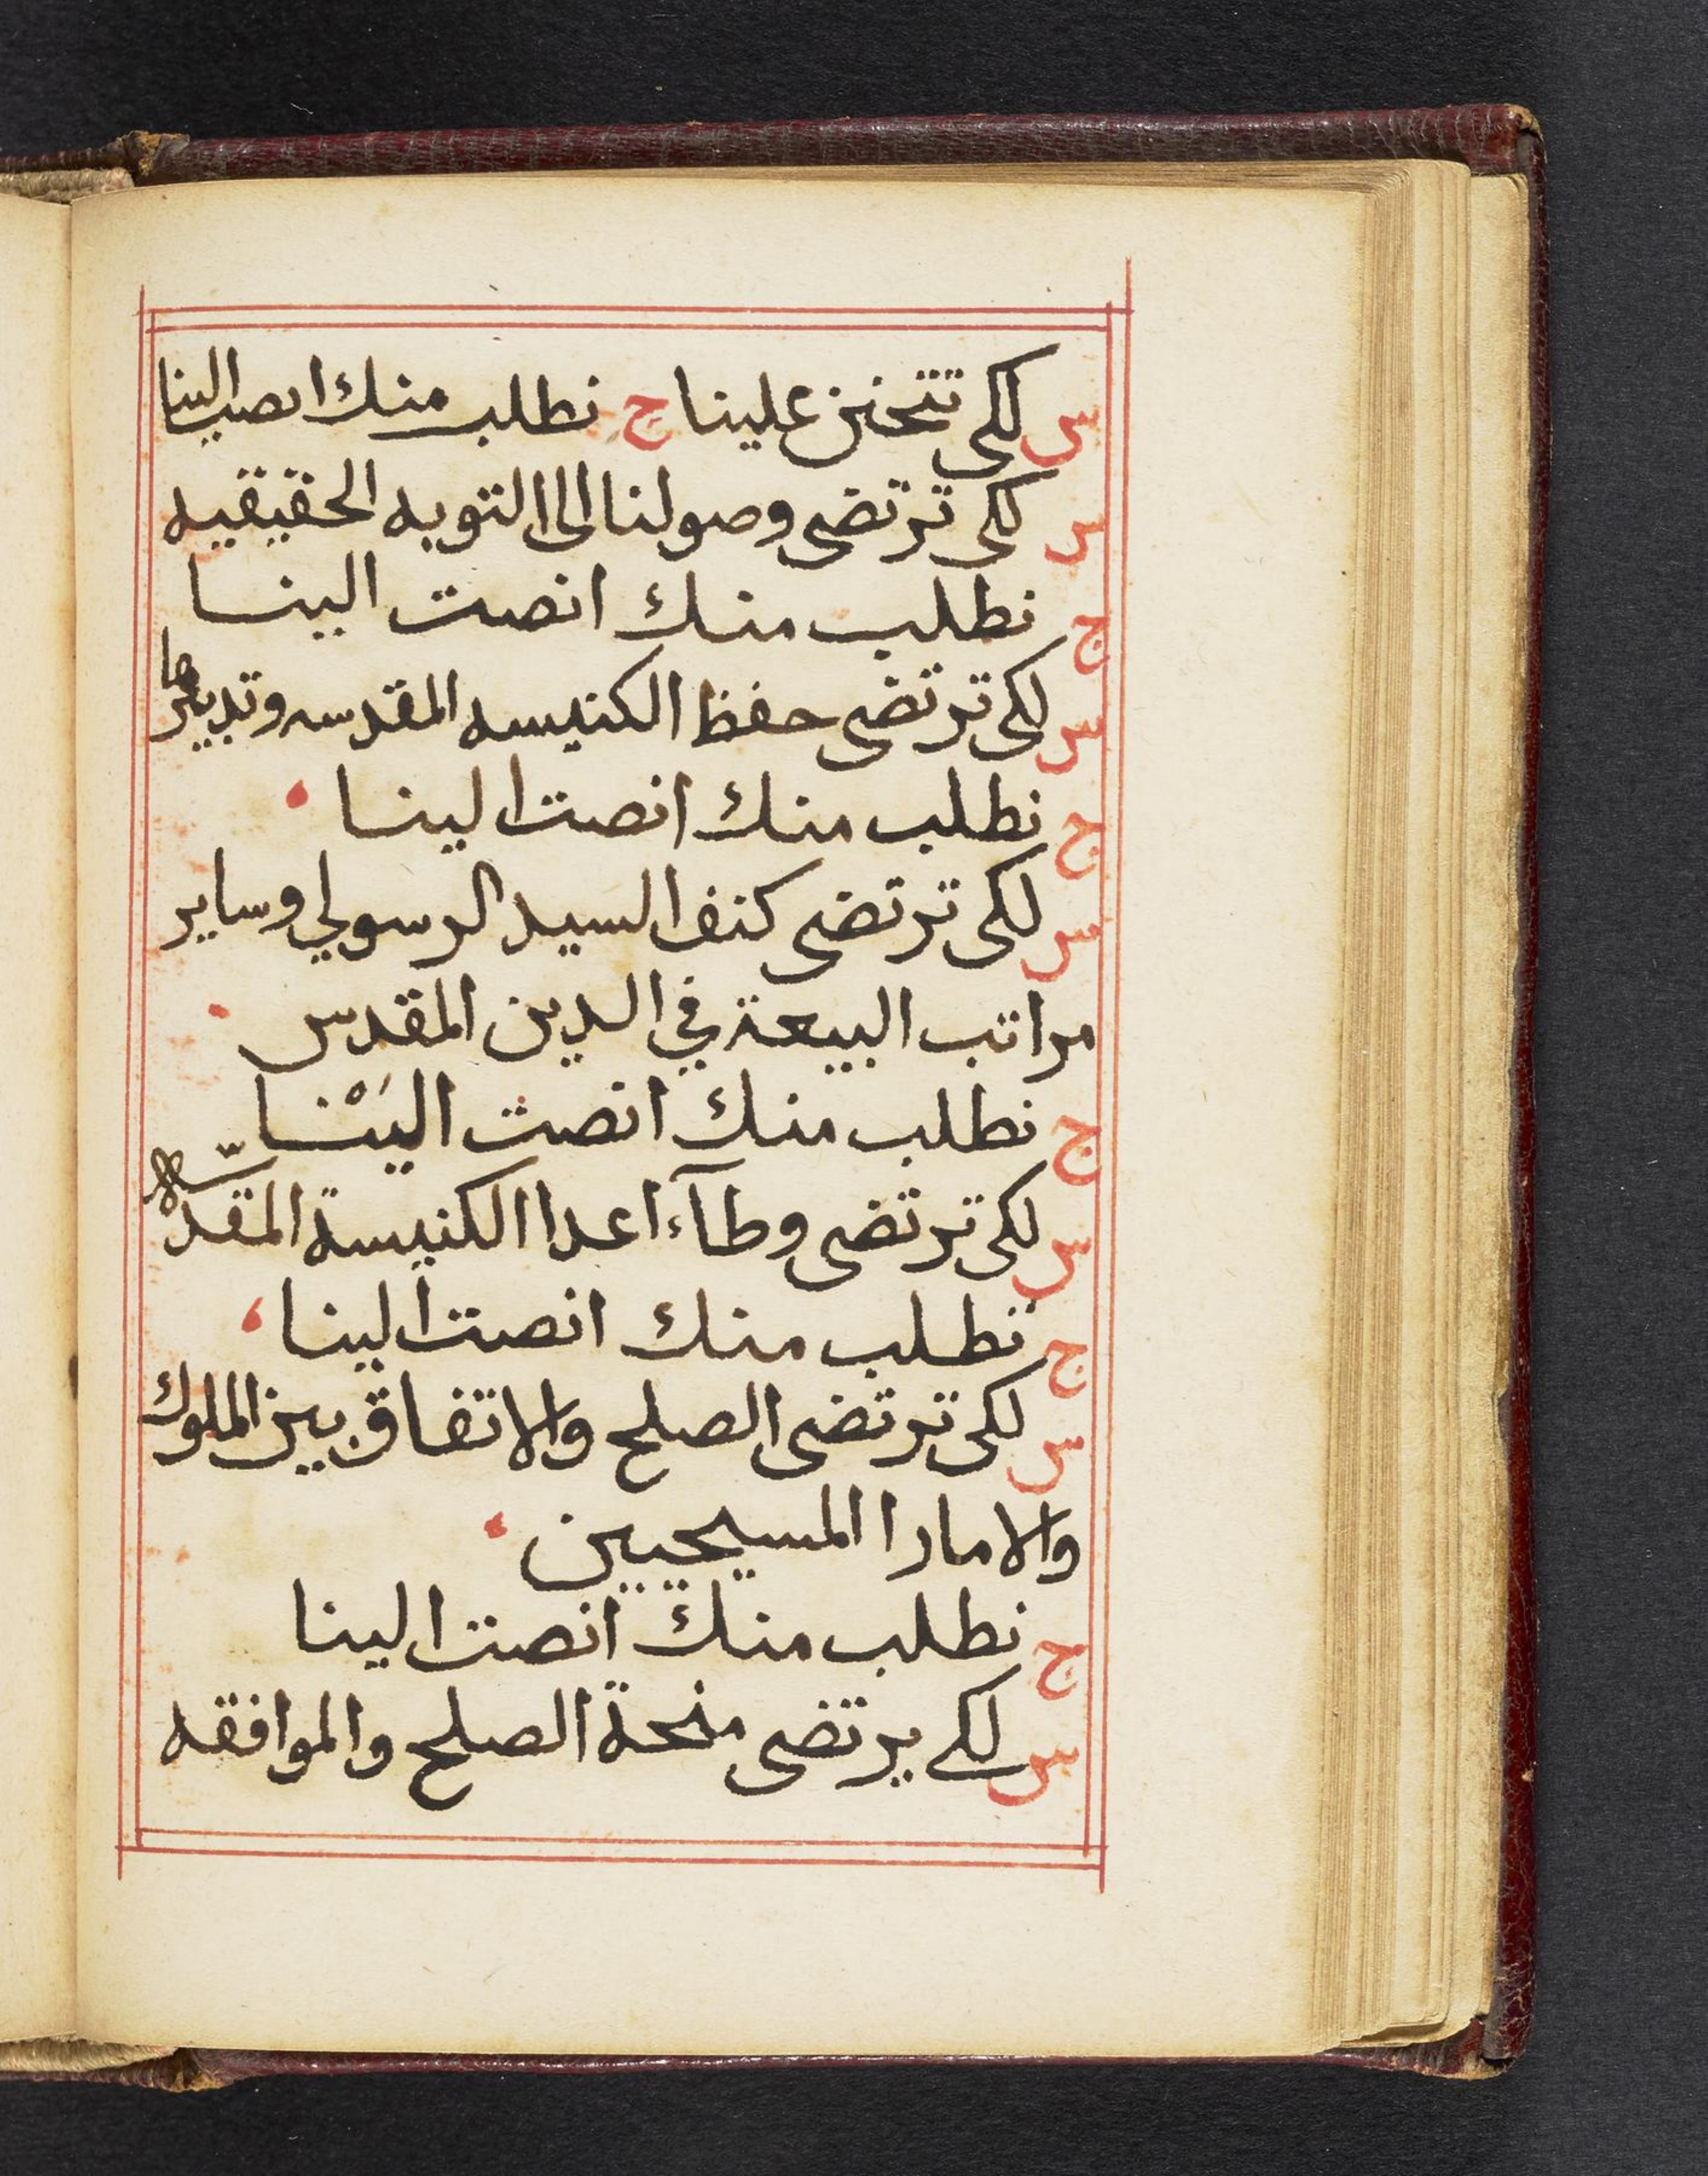 س لكى تتحنن علينا ج نطلب منك انصت الينا
س لكى ترتضى وصولنا الى التوبه الحقيقيه
ج نطلب منك انصت الينا
س لكى ترتضى حفظ الكنيسه المقدسه وتدبيرها
ج نطلب منك انصت الينا
س لكى ترتضى كنف السيد الرسولي وساير
مراتب البيعة في الدين المقدس
ج نطلب منك انصت اليَنْا
س لكى ترتضى وطآء اعدا الكنيسة المقدّسة
ج نطلب منك انصت الينا
س لكى ترتضى الصلح والاتفاق بين الملوك
والامارا المسيحيين
ج نطلب منك انصت الينا
س لكى يرتضى منحة الصلح والموافقه